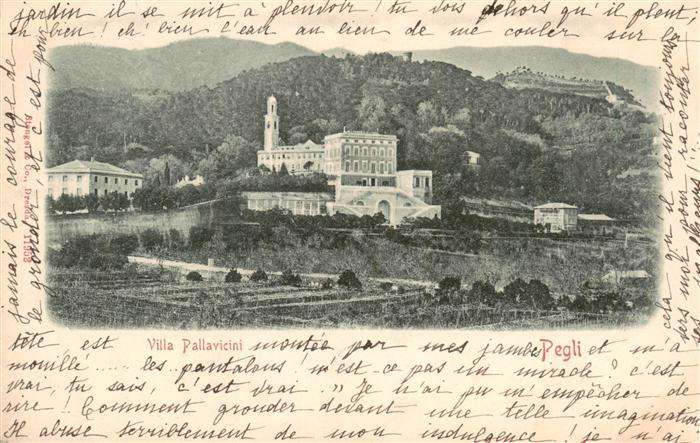 jardin il se mit à pleuvoir! tu vois dehors qu'il pleut
eh bien! eh bien! l'eau au lieu de me couler sur la
tête est montée par mes jambes et m'a
mouillé..... les.... pantalons! n'est-ce pas un miracle? c'est
vrai, tu sais, c'est vrai. " Je n'ai pu m'empêcher de
rire! Comment gronder devant une telle imagination
Il abuse terriblement de mon indulgence! je n'ai
jamais le courage de
le gronder et c'est pour
cela qu'il vient toujours
me raconter
Villa Pallavicini
Pegli
Stengel & Co., Dresden